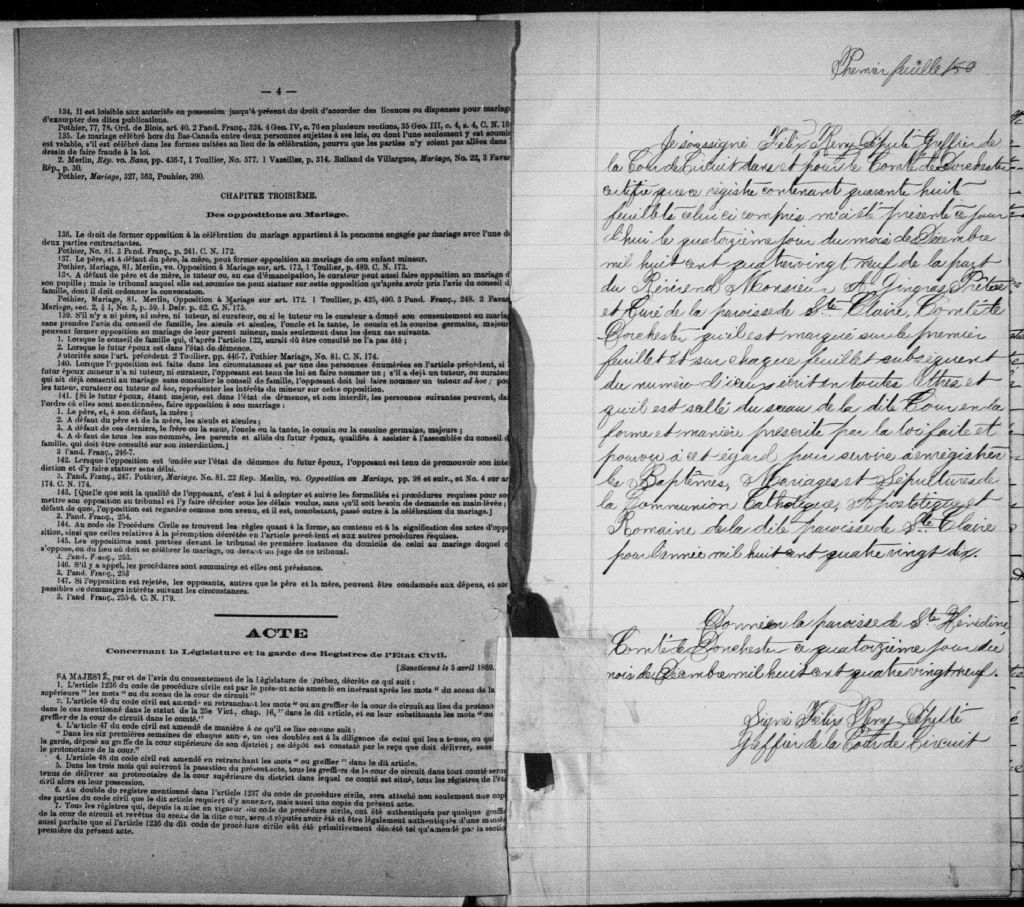 — 4 —
134. Il est loisible aux autorités en possession jusqu'à présent du droit d'accorder des licences ou dispenses pour mariage
d'exempter des dites publications.
Pothier, 77, 78. Ord. de Blois, art. 40. 2 Pand. Franç., 324. 4 Geo. IV, c. 76 en plusieurs sections, 35 Geo. III, c. 4, s. 4, C. N. 16
135. Le mariage célébré hors du Bas-Canada entre deux personnes sujettes à ses lois, ou dont l'une seulement y est soumis
est valable, s'il est célébré dans les formes usitées au lieu de la célébration, pourvu que les parties n'y soient pas allées dans
dessein de faire fraude à la loi.
2. Merlin, Rép. vo. Bans, pp. 436-7, 1 Toullier, No. 577. 1 Vazeilles, p. 314. Rolland de Villargues, Mariage, No. 22, 3 Favar
Rép., p. 30.
Pothier, Mariage, 327, 363, Pouhier, 390.
CHAPITRE TROISIÈME.
Des oppositions au Mariage.
136. Le droit de former opposition à la célébration du mariage appartient à la personne engagée par mariage avec l'une de
deux parties contractantes.
Pothier, No. 81. 3 Pand. Franç., p. 241. C. N. 172.
137. Le père, et à défaut du père, la mère, peut former opposition au mariage de son enfant mineur.
Pothier, Mariage, 81. Merlin, vo. Opposition à Mariage, sur art. 173, 1 Toullier, p. 489. C. N. 173.
138. A défaut de père et de mère, le tuteur ou, au cas d'émancipation, le curateur peut aussi faire opposition au mariage d
son pupille ; mais le tribunal auquel elle est soumise ne peut statuer sur cette opposition qu'après avoir pris l'avis du conseil d
famille, dont il doit ordonner la convocation.
Pothier, Mariage, 81. Merlin, Opposition à Mariage sur art. 172. 1 Toullier, p. 425, 490. 3 Pand. Franç., 248. 2 Favar
Mariage, sec. 2, § 1, No. 3, p. 59. 1 Delv. p. 62. C. N. 175.
139. S'il n'y a ni père, ni mère, ni tuteur, ni curateur, ou si le tuteur ou le curateur a donné son consentement au maria
sans prendre l'avis du conseil de famille, les aïeuls et aïeules, l'oncle et la tante, le cousin et la cousine germains, majeur
peuvent former opposition au mariage de leur parent mineur, mais seulement dans les deux cas suivants.
1. Lorsque le conseil de famille qui, d'après l'article 122, aurait dû être consulté ne l'a pas été ;
2. Lorsque le futur époux est dans l'état de démence.
Autorités sous l'art. précédent 2 Toullier, pp. 446-7. Pothier Mariage, No. 81. C. N. 174.
140. Lorsque l'opposition est faite dans les circonstances et par une des personnes énumérées en l'article précédent, si
futur époux mineur n'a ni tuteur, ni curateur, l'opposant est tenu de lui en faire nommer un ; s'il a déjà un tuteur, ou curateur
qui ait déjà consenti au mariage sans consulter le conseil de famille, l'opposant doit lui faire nommer un tuteur ad hoc ; pou
les tuteur, curateur ou tuteur ad hoc, représenter les intérêts du mineur sur cette opposition.
141. [Si le futur époux, étant majeur, est dans l'état de démence, et non interdit, les personnes suivantes peuvent, da
l'ordre où elles sont mentionnées, faire opposition à son mariage :
1. Le père, et, à son défaut, la mère ;
2. A défaut du père et de la mère, les aïeuls et aïeules ;
3. A défaut de ces derniers, le frère ou la sœur, l'oncle ou la tante, le cousin ou la cousine germains, majeurs ;
4. A défaut de tous les sus-nommés, les parents et alliés du futur époux, qualifiés à assister à l'assemblée du conseil d
famille, qui doit être consulté sur son interdiction.]
3 Pand. Franç., 246-7.
142. Lorsque l'opposition est fondée sur l'état de démence du futur époux, l'opposant est tenu de promouvoir son inter
diction et d'y faire statuer sans délai.
3. Pand. Franç., 247. Pothier, Mariage, No. 81. 22 Rep. Merlin, vo. Opposition au Mariage, pp. 98 et suiv., et No. 4 sur ar
174. C. N. 174.
143. [Quelle que soit la qualité de l'opposant, c'est à lui à adopter et suivre les formalités et procédures requises pour so
mettre son opposition au tribunal et l'y faire décider sous les délais voulus, sans qu'il soit besoin de demande en main-levée ;
défaut de quoi, l'opposition est regardée comme non avenu, et il est, nonobstant, passé outre à la célébration du mariage.]
3. Pand. Franç., 254.
144. Au code de Procédure Civile se trouvent les règles quant à la forme, au contenu et à la signification des actes d'oppo
sition, ainsi que celles relatives à la péremption décrétés en l'article précédent et aux autres procédures requises.
145. Les oppositions sont portées devant le tribunal de première instance du domicile de celui au mariage duquel o
s'oppose, ou du lieu où doit se célébrer le mariage, ou devant un juge de ce tribunal.
3. Pand. Franç., 253.
146. S'il y a appel, les procédures sont sommaires et elles ont préséance.
3. Pand. Franç., 253
147. Si l'opposition est rejetée, les opposants, autres que le père et la mère, peuvent être condamnés aux dépens, et son
passibles de dommages intérêts suivant les circonstances.
3. Pand Franç., 255-6. C. N. 179.
ACTE
Concernant la Législature et la garde des Registres de l'Etat Civil.
[Sanctionné le 5 avril 1869.
SA MAJESTÉ, par et de l'avis du consentement de la Législature de Québec, décrète ce qui suit :
1. L'article 1236 du code de procédure civile est par le présent acte amendé en insérant après les mots "du sceau de la
supérieure" les mots "ou du sceau de la cour de circuit."
2. L'article 45 du code civil est amendé en retranchant les mots "ou au greffier de la cour de circuit au lieu du protono
dans le cas mentionné dans le statut de la 25e Vict., chap. 16," dans le dit article, et en leur substituants les mots "ou
greffier de la cour de circuit dans le comté."
4. L'article 47 du code civil est amendé de manière à ce qu'il se lise comme suit :
"Dans les six premières semaines de chaque année, un des doubles est à la diligence de celui qui les a tenus, ou qui
la garde, déposé au greffe de la cour supérieure de son district ; ce dépôt est constaté par le reçu que doit délivrer, sans
le protonotaire de la cour."
4. L'article 48 du code civil est amendé en retranchant les mots "ou greffier" dans le dit article.
5. Dans les trois mois qui suivront la passation du présent acte, tous les greffiers de la cour de circuit dans tout comté seron
tenus de délivrer au protonotaire de la cour supérieure du district dans lequel ce comté est situé, tous les régistres de l'Éta
civil alors en leur possession.
6. Au double du registre mentionné dans l'article 1237 du code de procédure civile, sera attaché non seulement une cop
des parties du code civil que le dit article requiert d'y annexer, mais aussi une copie du présent acte.
7. Tous les régistres qui, depuis la mise en vigueur du code de procédure civile, ont été authentiqués par quelque greffie
de la cour de circuit et revêtus du sceau de la dite cour, seront réputés avoir été et être légalement authentiqués d'une maniè
aussi parfaite que si l'article 1236 du dit code de procédure civile eût été primitivement décrété tel qu'amendé par la sectio
première du présent acte.
Premier feuillet
Je soussigné Félix Rémy Député Greffier de
la Cour de Circuit dans et pour le Comté de Dorchester
certifie que ce régistre contenant quarante huit
feuillets celui ci compris m'a été présenté ce jour
d'hui le quatorzième jour du mois de Décembre
mil huit cent quatre vingt neuf de la part
du Révérend Monsieur A. Gingras Prêtre
et Curé de la paroisse de Ste Claire, Comté de
Dorchester qu'il est marqué sur le premier
feuillet et sur chaque feuillet subséquent
du numéro d'iceux écrit en toutes lettres et
qu'il est scellé du sceau de la dite Cour en la
forme et manière prescrite par la loi faite et
pourvu à cet égard pour servir à enregistrer
les Baptêmes, Mariages et Sépultures de
la Communion Catholique, Apostolique et
Romaine de la dite paroisse de Ste Claire
pour l'année mil huit cent quatre vingt dix.
Donné en la paroisse de Ste Hénédine,
Comté de Dorchester ce quatorzième jour du
mois de Décembre mil huit cent quatre vingt neuf.
Signé Félix Rémy Député
Greffier de la Cour de Circuit